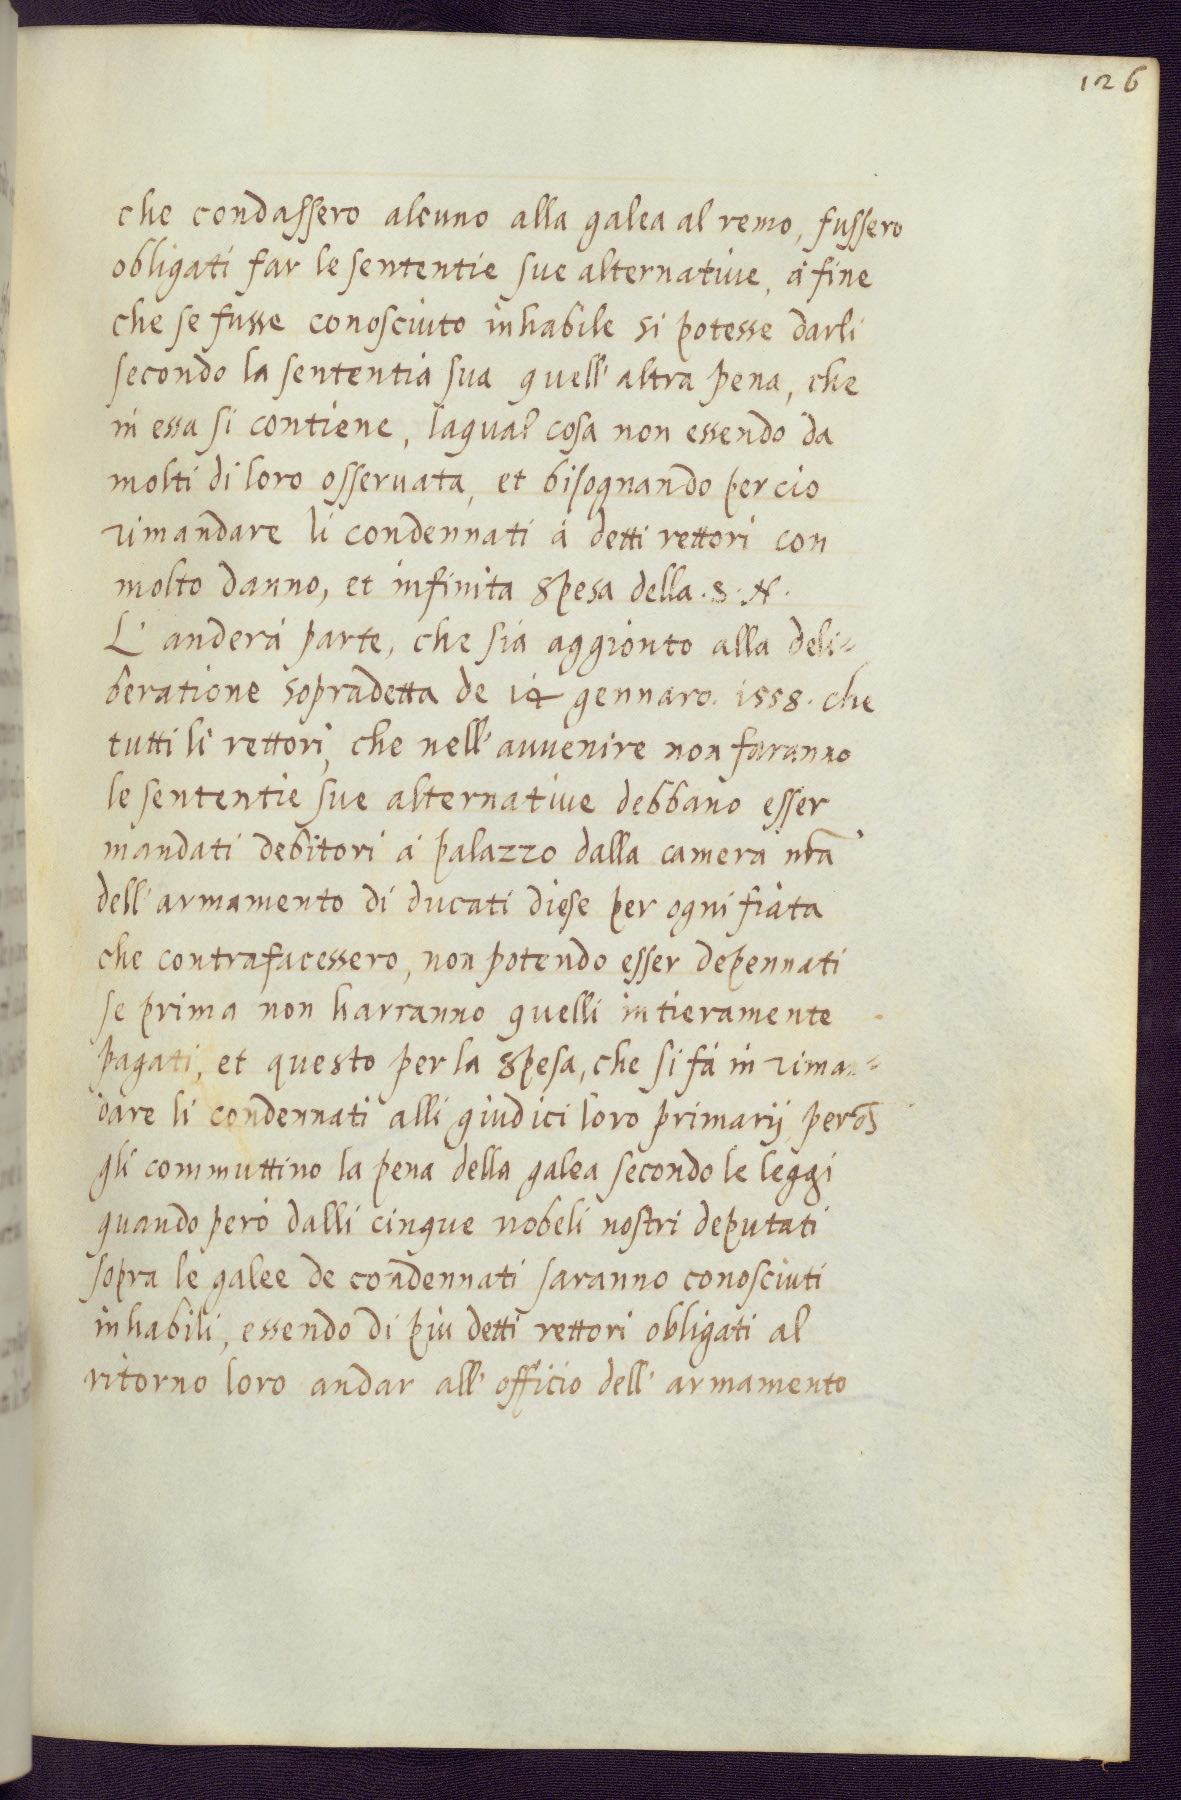 126
che condassero alcuno alla galea al remo, fussero
obligati far le sententie sue alternatiue, à fine
che se fusse conosciuto inhabile si potesse darli
secondo la sententia sua quell' altra pena, che
in essa si contiene, laqual cosa non essendo da
molti di loro osseruata, et bisognando per cio
rimandare li condennati à detti rettori con
molto danno, et infinita spesa della .S.N.
L' anderà parte, che sia aggionto alla deli-
beratione sopradetta de 14 gennaro. 1558. che
tutti li rettori, che nell' auuenire non faranno
le sententie sue alternatiue debbano esser
mandati debitori à palazzo dalla camera nrã
dell' armamento di ducati diese per ogni fiata
che contrafacessero, non potendo esser depennati
se prima non harranno quelli intieramente
pagati, et questo per la spesa, che si fà in riman-
dare li condennati alli giudici loro primarij,
gli commuttino la pena della galea secondo le leggi
quando però dalli cinque nobeli nostri deputati
sopra le galee de condennati saranno conosciuti
inhabili, essendo di più detti rettori obligati al
ritorno loro andar all' officio dell' armamento